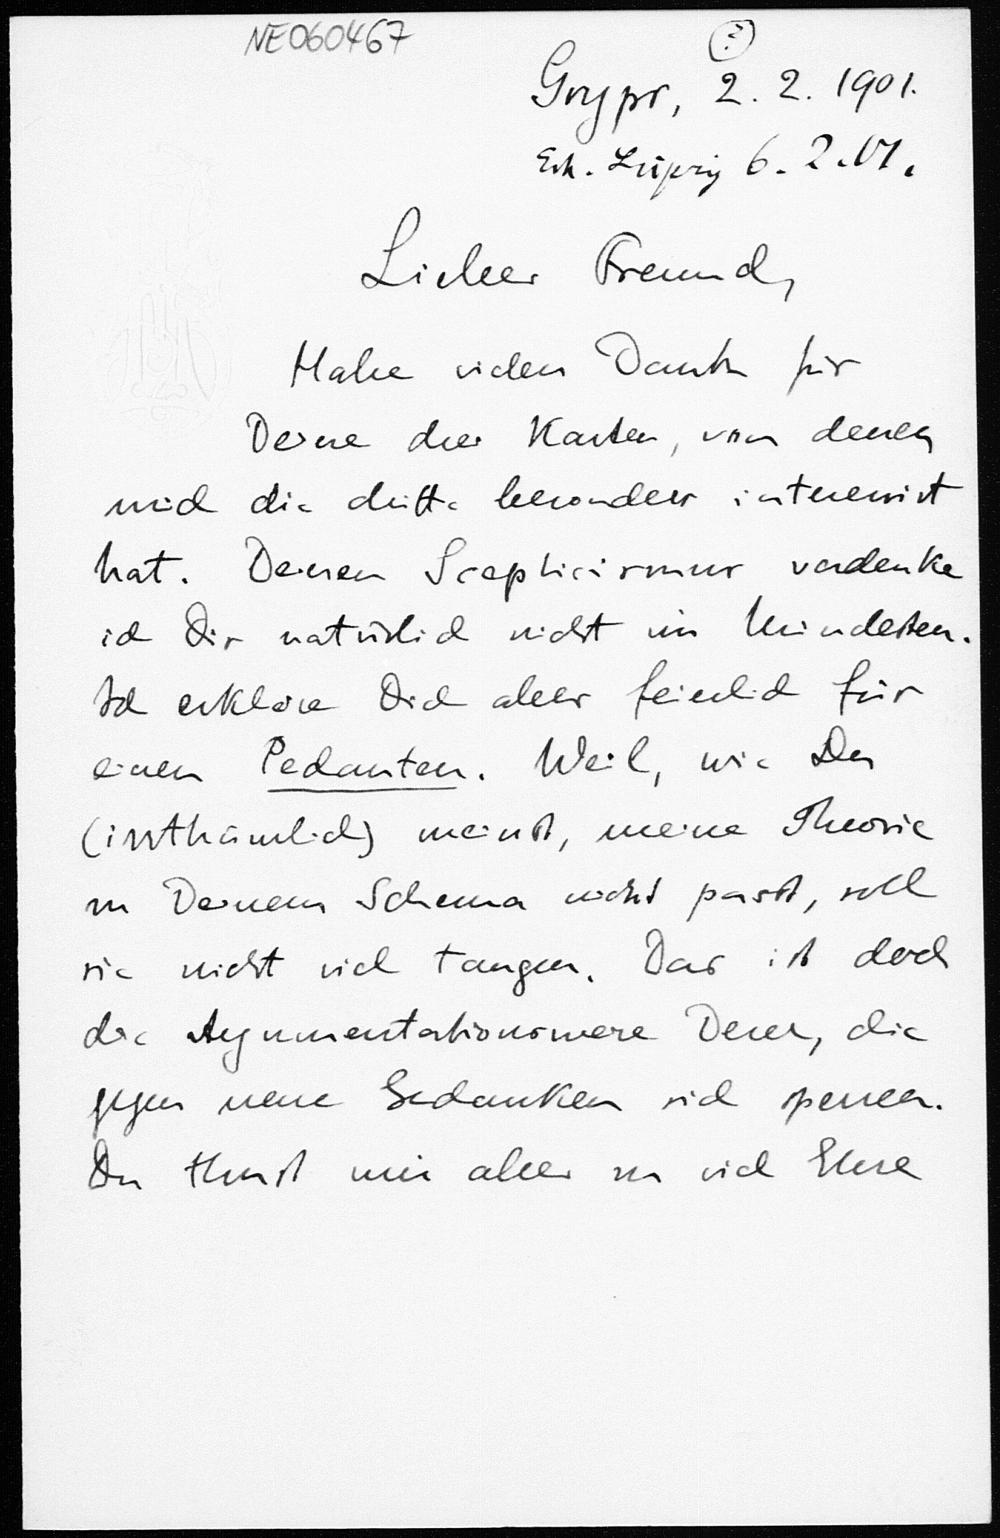 NE060467
Gryps, 2. 2. 1901.
Erh. Leipzig 6. 2. 01.
Lieber Freund,
Habe vielen Dank für
Deine drei Karten, von denen
mich die dritte besonders interessirt
hat. Deinen Scepticismus verdenke
ich Dir natürlich nicht im Mindesten.
Ich erkläre Dich aber feierlich für
einen Pedanten. Weil, wie Du
(irrthümlich) meinst, meine Theorie
in Deinem Schema nicht passt, soll
sie nicht viel taugen. Das ist doch
die Argumentationsweise Derer, die
gegen neue Gedanken sich sperren.
Du thust mir aber zu viel Ehre